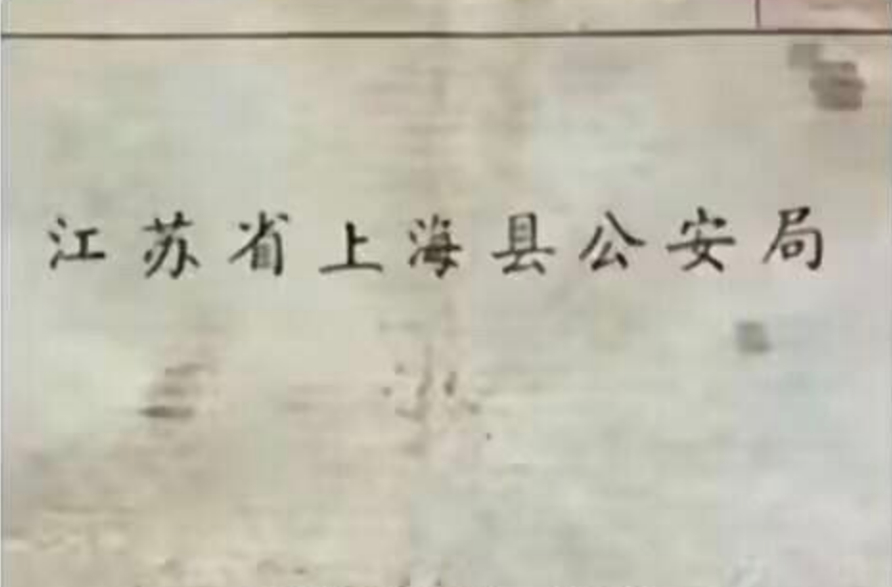 江苏省上海县公安局